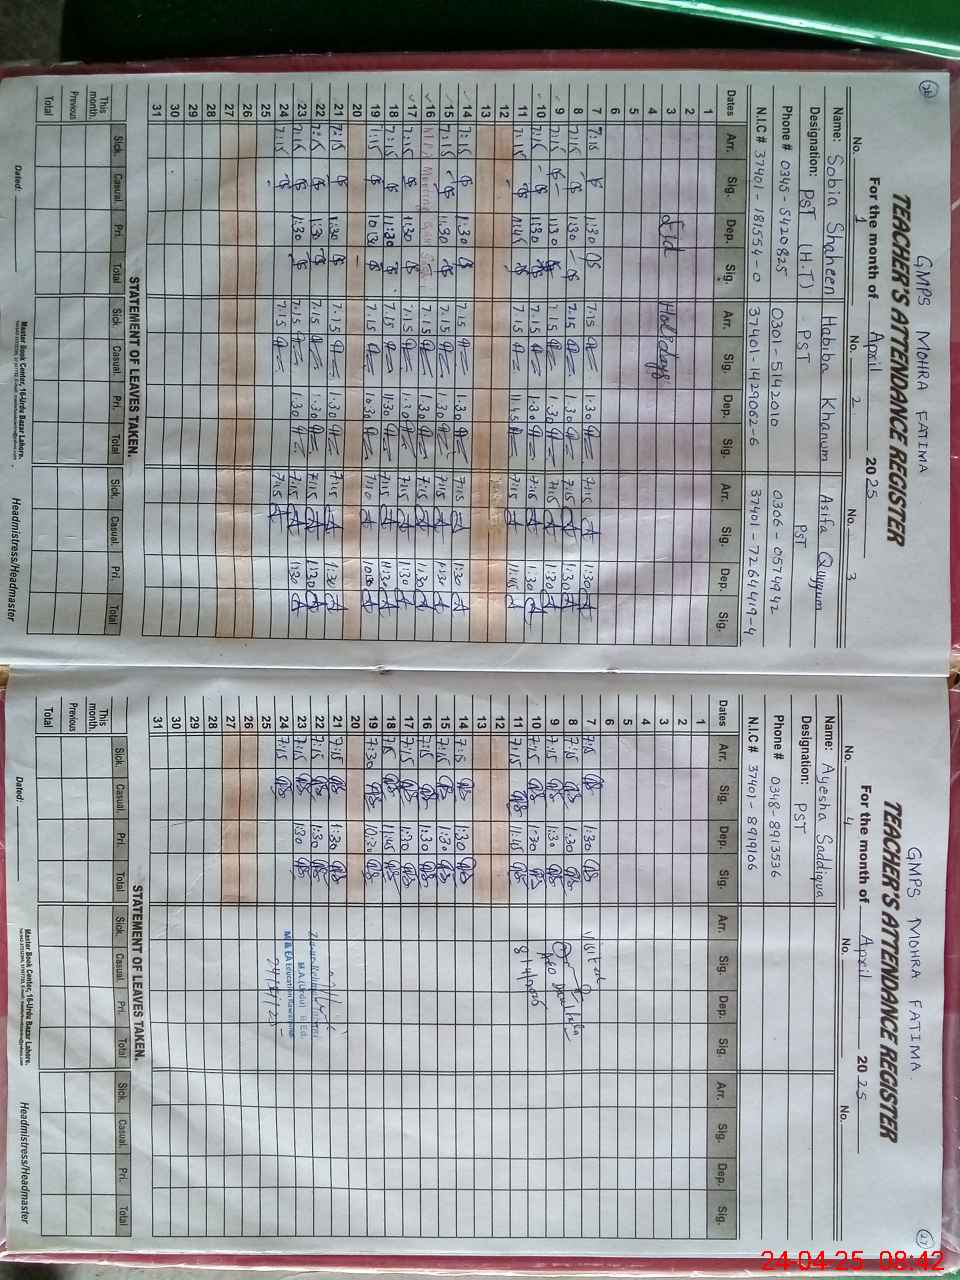 26
GMPS MOHRA FATIMA
TEACHER'S ATTENDANCE REGISTER
For the month of April 2025
No. 1 No. 2 No. 3
Name: Sobia Shaheen Habiba Khanum Asifa Quyyum
Designation: PST (H.T) PST PST
Phone # 0345-5420825 0301-5142010 0306-0574942
N.I.C # 37401-181554-0 37401-1429062-6 37401-7264419-4
Dates Arr. Sig. Dep. Sig. Arr. Sig. Dep. Sig. Arr. Sig. Dep. Sig.
1
2
3 Eid Holidays
4
5
6
7 7:15 1:30 7:15 1:30 7:15 1:30
8 7:15 1:30 7:15 1:30 7:15 1:30
9 7:15 1:30 7:15 1:30 7:15 1:30
10 7:15 1:30 7:15 1:30 7:15 1:30
11 7:15 11:45 7:15 11:45 7:15 11:45
12
13
14 7:15 1:30 7:15 1:30 7:15 1:30
15 7:15 1:30 7:15 1:30 7:15 1:30
16 Meeting 7:15 1:30 7:15 1:30
17 7:15 1:30 7:15 1:30 7:15 1:30
18 7:15 11:30 7:15 11:30 7:15 11:30
19 7:15 10:30 7:15 10:30 7:10 10:30
20
21 7:15 1:30 7:15 1:30 7:15 1:30
22 7:15 1:30 7:15 1:30 7:15 1:30
23 7:15 1:30 7:15 1:30 7:15 1:30
24 7:15 7:15 7:15
25
26
27
28
29
30
31
STATEMENT OF LEAVES TAKEN.
Sick. Casual. Pri. Total Sick. Casual. Pri. Total Sick. Casual. Pri. Total
This month.
Previous
Total
Dated:
Master Book Center, 16-Urdu Bazar Lahore.
Headmistress/Headmaster
27
GMPS MOHRA FATIMA
TEACHER'S ATTENDANCE REGISTER
For the month of April 2025
No. 4 No. No.
Name: Ayesha Saddiqua
Designation: PST
Phone # 0348-8913536
N.I.C # 37401-8919106
Dates Arr. Sig. Dep. Sig. Arr. Sig. Dep. Sig. Arr. Sig. Dep. Sig.
1
2
3
4
5
6
7 7:15 1:30 Visited
8 7:15 1:30
9 7:15 1:30 AEO
10 7:15 1:30
11 7:15 11:45
12
13
14 7:15 1:30
15 7:15 1:30
16 7:15 1:30
17 7:15 1:30
18 7:15 11:45
19 7:30 10:30
20
21 7:15 1:30
22 7:15 1:30
23 7:15 1:30 M.A (Urdu) B.Ed.
24 7:15 M & EA Education Rawalpindi
24/4/25
25
26
27
28
29
30
31
STATEMENT OF LEAVES TAKEN.
Sick. Casual. Pri. Total Sick. Casual. Pri. Total Sick. Casual. Pri. Total
This month.
Previous
Total
Dated:
Master Book Center, 16-Urdu Bazar Lahore.
Headmistress/Headmaster
24-04-25 08:42